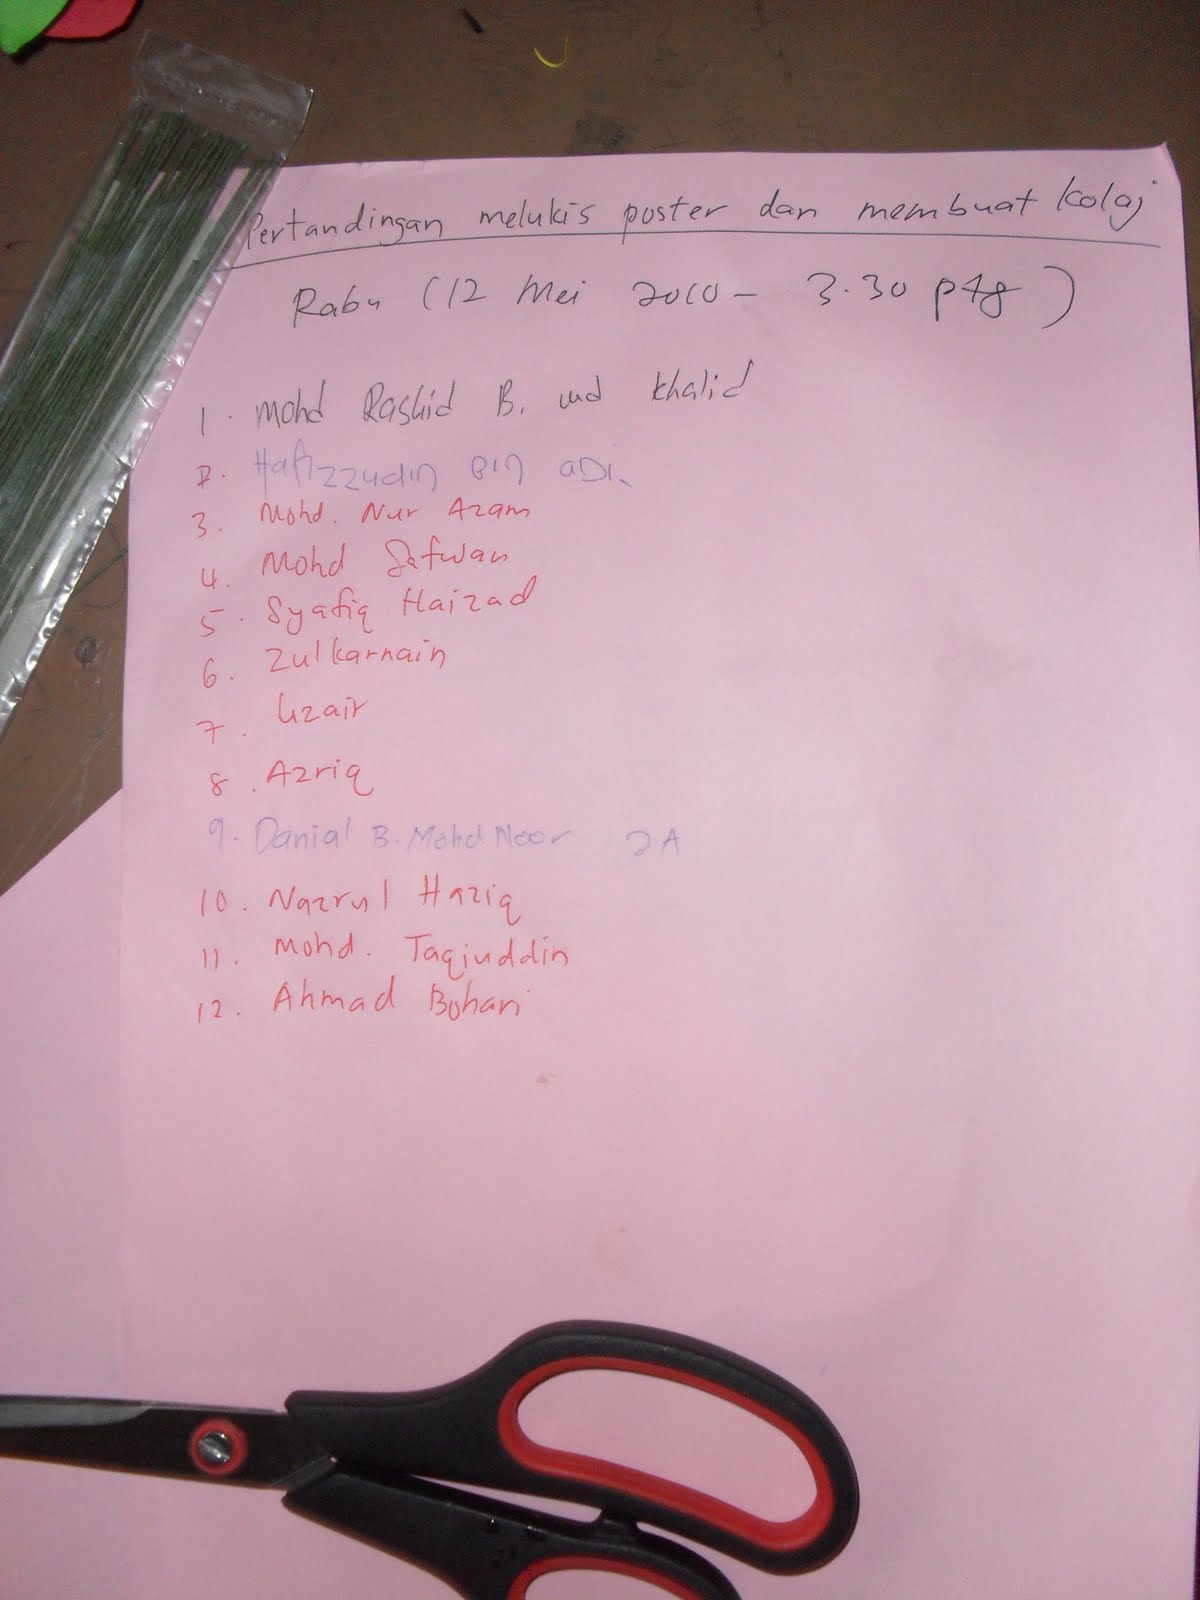 Pertandingan melukis poster dan membuat kolaj
Rabu (12 Mei 2010 - 3.30 ptg)
1. Mohd Rashid B. Md Khalid
2. Hafizzudin Bin aDi.
3. Mohd. Nur Azam
4. Mohd Safwan
5. Syafiq Haizad
6. Zulkarnain
7. Uzair
8. Azriq
9. Danial B. Mohd Noor 2A
10. Nazrul Haziq
11. Mohd. Taqiuddin
12. Ahmad Bohari